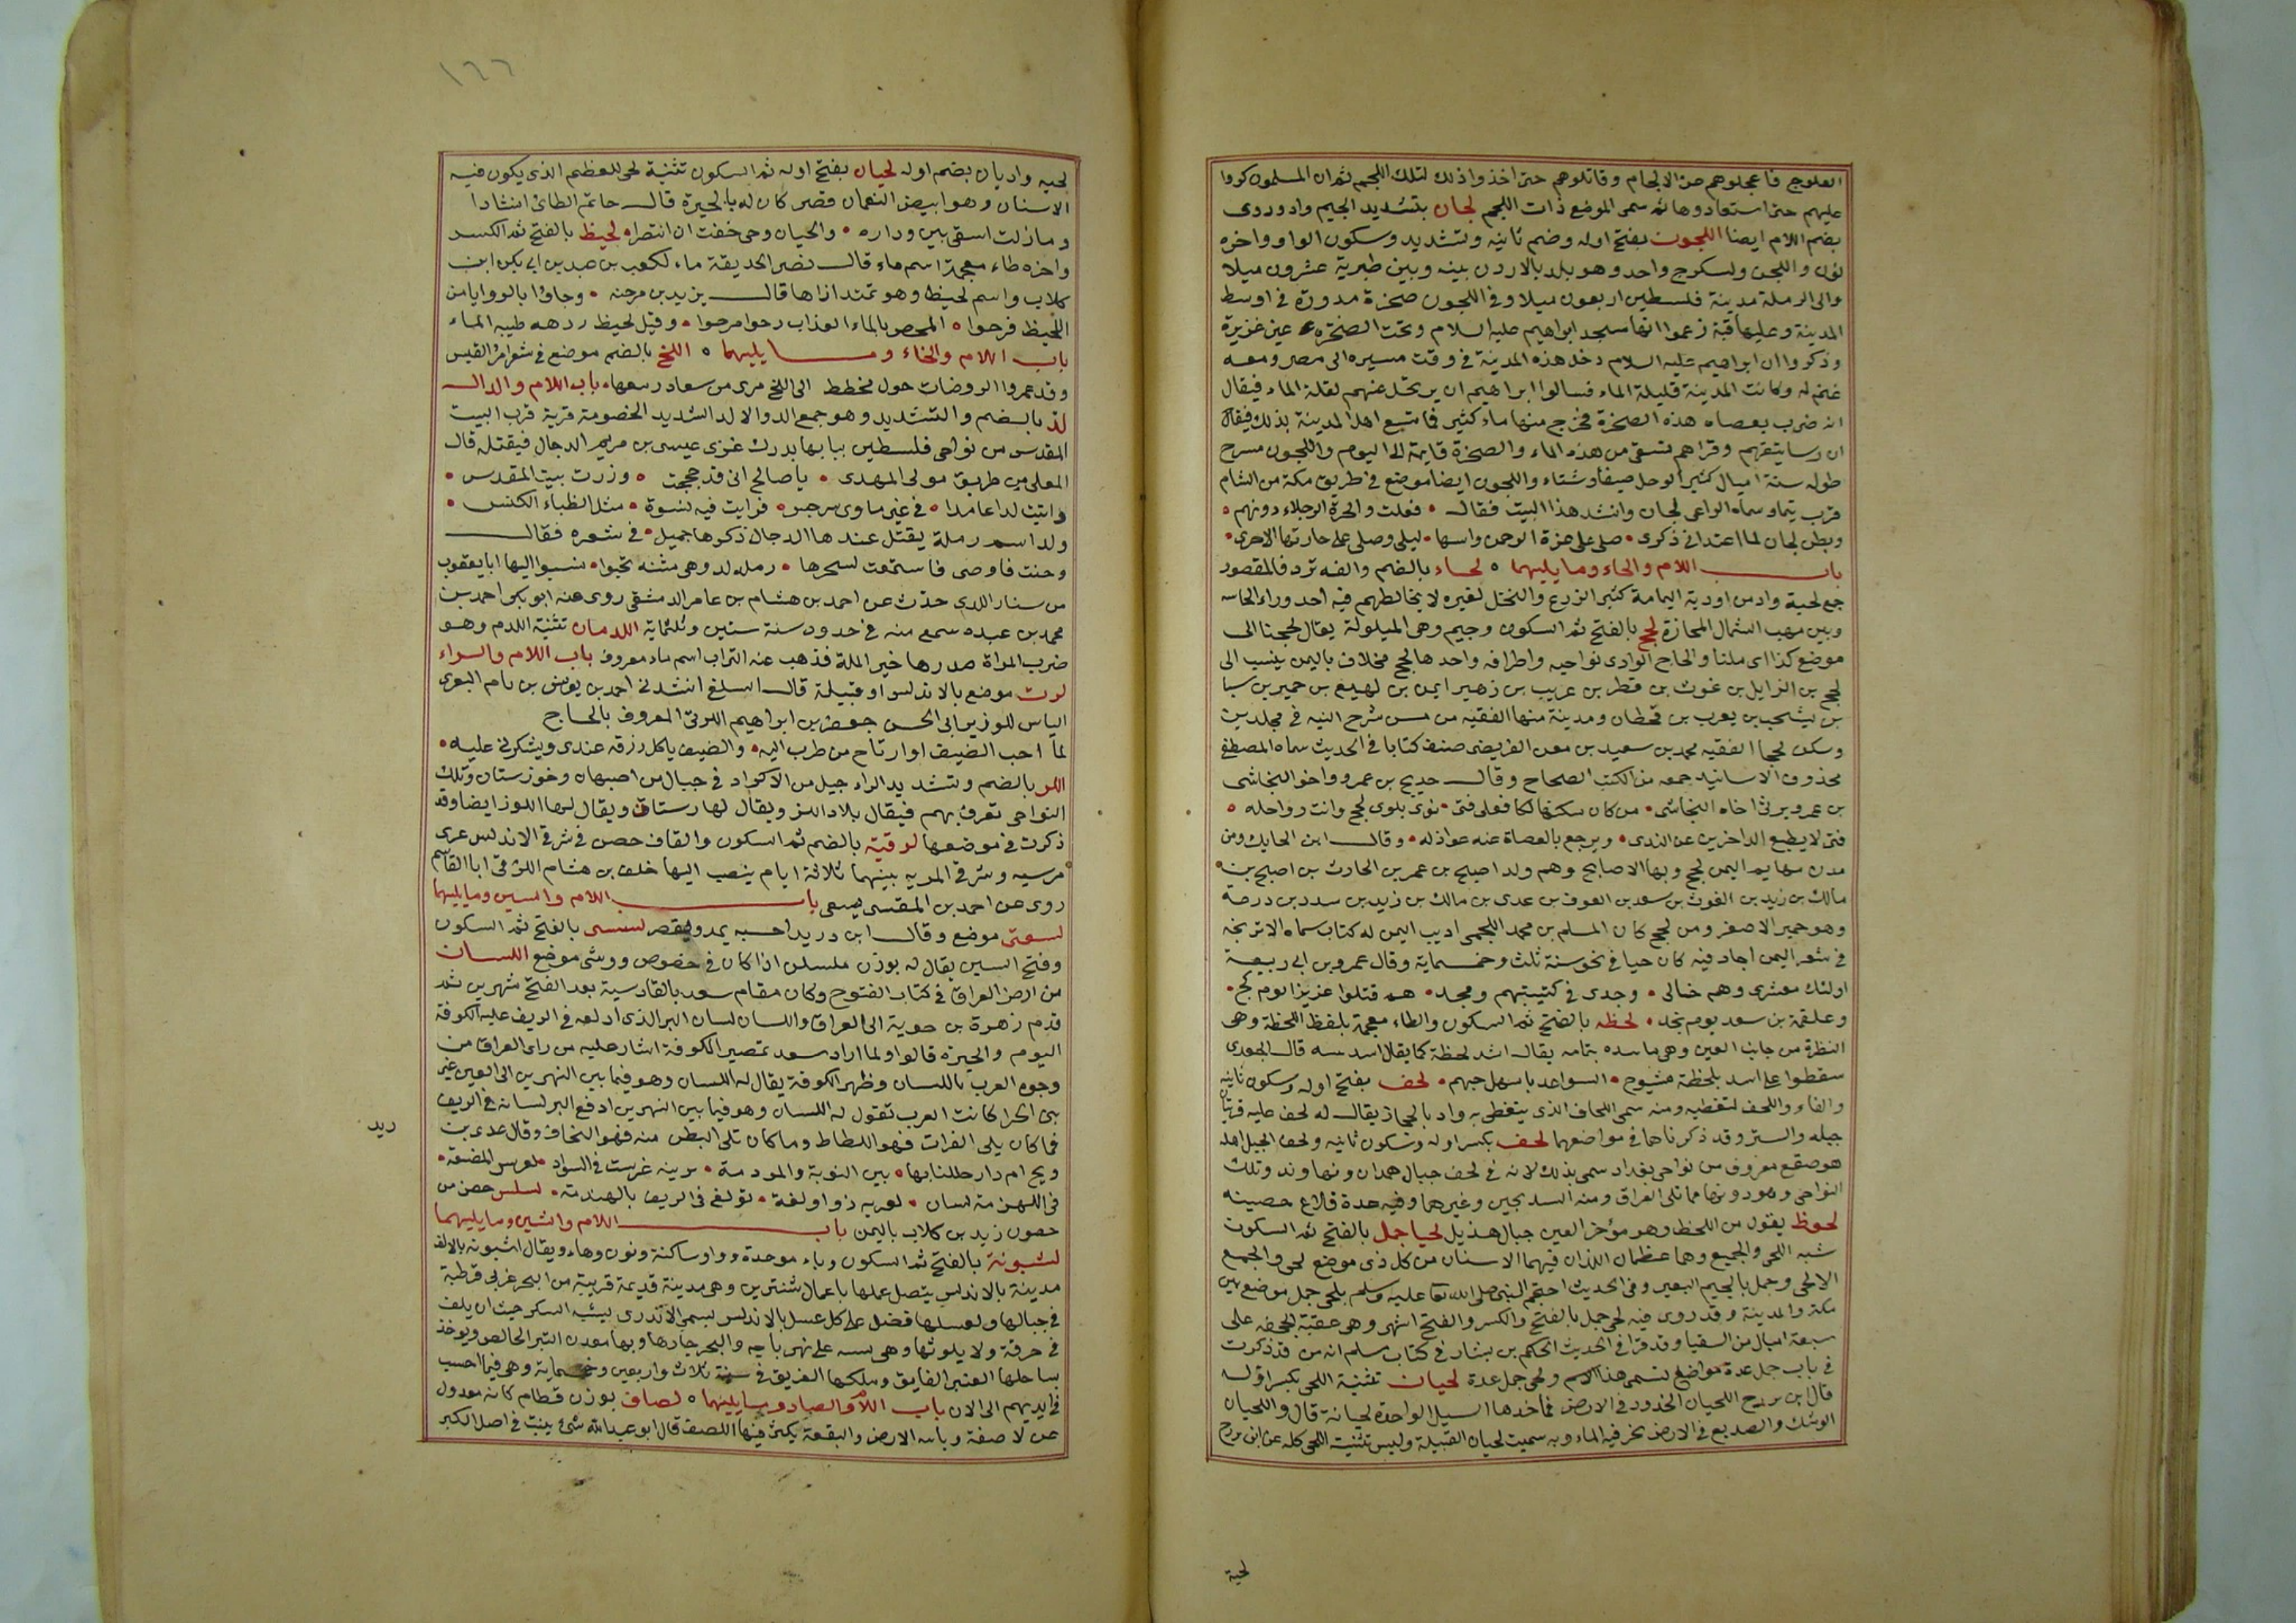 العلوج فاعجلوهم عن الالجام وقاتلوهم حتى اخذوا ذلك لتلك اللجم ثم ان المسلمون كروا
عليهم حتى استعادوها ثم سمى الموضع ذات اللجم لجان بتشديد الجيم واد وروى
بضم اللام ايضا اللجون بفتح اوله وضم ثانيه وتشديد وسكون الواو واخره
نون واللجن ولسكوج واحد وهو بلد بالاردن بينه وبين طبرية عشرون ميلا
والى الرملة مدينة فلسطين اربعون ميلا وفى اللجون صخرة مدورة فى اوسط
المدينة وعليها قبة زعموا انها مسجد ابراهيم عليه السلام وتحت الصخرة عين غزيرة
وذكروا ان ابراهيم عليه السلام دخل هذه المدينة فى وقت مسيره الى مصر ومعه
غنم له وكانت المدينة قليلة الماء فسالوا ابراهيم ان يرتحل عنهم لقلة الماء فيقال
انه ضرب بعصاه هذه الصخرة فخرج منها ماء كثير فاتسع اهل المدينة بذلك فيقال
ان رسايتقهم وقراهم تسقى من هذه الماء والصخرة قايمة الى اليوم واللجون مسرح
طوله ستة اميال كثير الوحل صيفا وشتاء واللجون ايضا موضع فى طريق مكة من الشام
قرب تيما وسماه الراعى لجان وانشد هذا البيت فقال فعلت والحرة الرجلاء دونهم
وبطن لجان لما اعتدانى ذكرى صلى على عزة الرحمن وابنتها ليلى وصلى على جارتها الاخرى
باب اللام والحاء وما يليهما لحاء بالضم والفه تزد فالمقصور
جمع لحية واد من اودية اليمامة كثير الزرع والنخل لغيره لا يخالطهم فيه احد وراء
وبين مهب الشمال المجازة لحج بالفتح ثم السكون وجيم وهى الميلولة يقال لحجنا الى
موضع كذا اى ملنا والحاج الوادى نواحيه واطرافه واحدها لحج مخلاف باليمن ينسب الى
لحج بن الزايل بن غوث بن قطن بن عريب بن زهير ايمن بن لهيع بن حمير بن سبا
بن يشجب بن يعرب بن قحطان ومدينة منها الفقيه من شرح التنبيه فى مجلدين
وسكن لحجا الفقيه محمد بن سعيد بن معن القريضى صنف كتابا فى الحديث سماه المصطفى
محذوف الاسانيد جمعه من الكتب الصحاح وقال حديج بن عمرو واخو النجاشى
بن عمرو يرثى اخاه النجاشى من كان سكرها لكا فعلى فتى نوى بلوى لحج وانت رواحله
فتى لا يطيع الداخرين عن الندى ويرجع بالعصاة عنه عواذله وقال ابن الحايك ومن
مدن اليمن لحج وبها الاصابح وهم ولد اصبح بن عمر بن الحارث بن اصبح بن
مالك بن زيد بن الغوث بن سعد بن العوف بن عدى بن مالك بن زيد بن سدد بن درعة
وهو حمير الاصغر ومن لحج كان المسلم بن محمد اللحجى اديب اليمن له كتاب سماه الاترنجه
فى شعر اليمن اجاد فيه كان حيا فى نحو سنة ثلث وخمسماية وقال عمرو بن ابى ربيعة
اولئك معشرى وهم خالى وجدى فى كتيبتهم ومجد هم قتلوا عزيزا يوم لحج
وعلقمة بن سعد يوم نجد لحظه بالفتح ثم السكون والظاء معجمة بلفظ اللحظة وهى
النظرة من جانب العين وهى ماسده بتهامه يقال اشد لحظة كما يقال اسد بيشه قال الجعدى
سقطوا على اسد بلحظة مشبوح السواعد باسل جهم لحف بفتح اوله وسكون ثانيه
والفاء واللحف لتغطيه ومنه سمى اللحاف الذى يتغطى به واد بالحجاز يقال له لحف عليه قريتان
جبله والستر وقد ذكرناها فى مواضعهما لحف بكسر اوله وسكون ثانيه ولحف الجبل اصله
هو صقع معروف من نواحى بغداد سمى بذلك لانه فى لحف جبال همدان ونهاوند وتلك
النواحى وهو دونها مما تلى العراق ومنه البندنيجين وغيرهما وفيه عدة قلاع حصينه
لحوظ يقول من اللحظ وهو مؤخر العين جبال هذيل لحيا جمل بالفتح ثم السكون
شبه اللحى والجميع وهما عظمان اللذان فيهما الاسنان من كل ذى موضع لحى والجمع
الالحى وجمل بالجيم البعير وفى الحديث احتجم النبى صلى الله تعا عليه وسلم بلحى جمل موضع بين
مكة والمدينة وقد روى فيه لحى جمل بالفتح والكسر والفتح اشهر وهى عقبة الجحفه على
سبعة اميال من السقيا وقد قرا فى الحديث الحكم بن بشار فى كتاب مسلم انه من قد ذكرت
فى باب جمل عدة مواضع تسمى هذا الاسم ولحى جمل عدة لحيان تثنية اللحى بكسر اوله
قال ابن بررج اللحيان الخدود فى الارض مما خدها السيل الواحدة لحيانة قال واللحيان
الوشك والصديع فى الارض يخر فيه الماء وبه سميت لحيان القبيلة وليس تثنية اللحى كله عن ابن بررج
لحية
١٦٦
لحيه واديان بضم اوله لحيان بفتح اوله ثم السكون تثنية لحى للعظم الذى يكون فيه
الاسنان وهو ابيض النعمان قصر كان له بالحيرة قال حاتم الطائ انشادا
ومازلت اسقى بين وداره والحيان وحى خفت ان انتصرا لحيظ بالفتح ثم الكسر
واخره ظاء معجمة اسم ماء قال نصر الحديقة ماء لكعب بن عبد بن ابى بكر ابن
كلاب واسم لحيظ وهو ثمد ازاها قال يزيد بن مرحنه وجاوا بالروايا من
اللحيظ فرحوا المحض بالماء العذاب رحوا مرحوا وقيل لحيظ ردهه طيبه الماء
باب اللام والخاء وما يليهما اللخ بالضم موضع فى شعر امرئ القيس
وقد عمروا الروضات حول مخطط الى اللخ مرى من سعاد رسمعا باب اللام والدال
لد بالضم والتشديد وهو جمع الد والالد الشديد الخصومة قرية قرب البيت
المقدس من نواحى فلسطين ببابها يدرك غزى عيسى بن مريم الدجال فيقتله قال
المعلى بن طريق مولى المهدى يا صالح انى قد حججت وزرت بيت المقدس
واتيت لدا عامدا فى غير ماوى سرجس فرايت فيه نسوة مثل الظباء الكنس
ولد اسم رملة يقتل عندها الدجال ذكرها جميل فى شعره فقال
وحنت فاوصى فاستمعت لسحرها رمله لد وهى مثنه تحبوا نسبوا اليها ابا يعقوب
من سنار اللدى حدث عن احمد بن هشام بن عامر الدمشقى روى عنه ابو بكر احمد بن
محمد بن عبده سمع منه فى حدود سنة ستين وثلثماية اللدمان تثنية اللدم وهو
ضرب المراة صدرها خبز الملة فذهب عنه التراب اسم ماء معروف باب اللام والراء
لرت موضع بالاندلس او قبيلة قال السلفى انشدنى احمد بن يوسف بن نام اليعمرى
الياس للوزير ابى الحسن جعفر بن ابراهيم اللرتى المعروف بالحاج
لما احب الضيف اوارتاح من طرب اليه والضيف ياكل رزقه عندى ويشكرنى عليه
اللر بالضم وتشديد الراء جيل من الاكراد فى جبال من اصبهان وخوزستان وتلك
النواحى تعرف بهم فيقال بلاد اللر ويقال لها رستاق ويقال لها اللوز ايضا وقد
ذكرت فى موضعها لرقية بالضم ثم السكون والقاف حصن فى شرقى الاندلس غربى
مرسيه وشرقى المريه بينهما ثلاثة ايام ينسب اليها خلف بن هشام اللرقى ابا القاسم
روى عن احمد بن المقسى باب اللام والسين وما يليهما
لسعى موضع وقال ابن دريد احسبه يمد ويقصر لسسى بالفتح ثم السكون
وفتح السين يقال له بوزن ملسلس اذا كان فى خصوص ووشى موضع اللسان
من ارض العراق فى كتاب الفتوح وكان مقام سعد بالقادسية بعد الفتح شهرين ثم
قدم زهرة بن حوية الى العراق واللسان لسان البر الذى ادلعه فى الريف عليه الكوفة
اليوم والحيرة قالوا ولما اراد سعد تمصير الكوفة اشار عليه من راى العراق من
وجوه العرب باللسان وظهر الكوفة يقال له اللسان وهو فيما بين النهرين الى العين عين
بنى الحرا كانت العرب تقول له اللسان وهو فيما بين النهرين ادفع البر لسانه فى الريف
فما كان يلى الفرات فهو اللطاط وما كان تلى البطن منه فهو النخاف وقال عدى بن
ويح ام دار حللنا بها بين النوبة والمردمة برينه غرست فى السواد لغرس المضغة
فى اللهزمة لسان لعربه ذو اولغة تولغ فى الريف بالهندمة لسلس حصن من
حصون زيد بن كلاب باليمن باب اللام والشين وما يليهما
لشبونة بالفتح ثم السكون وباء موحدة وواو ساكنة ونون وهاء ويقال اشبونه بالالف
مدينة بالاندلس يتصل عملها باعمال شنترين وهى مدينة قديمة قريبة من البحر غربى قرطبة
فى جبالها ولعسلها فضل على كل عسل بالاندلس يسمى الاندرى يشبه السكر حيث ان يلف
فى خرقة ولا يلوثها وهى على نهر باجه والبحر جارها وبها معدن التبر الخالص ويوخذ
بساحلها العنبر الفايق وملكها الفرنق فى سنة ثلاث واربعين وخمسماية وهى فيما احسب
فى ايديهم الى الان باب اللام والصاد وما يليهما لصاف بوزن قطام كانه معدول
عن لاصفة وباسه الارض والبقعة يكثر فيها اللصف قال ابو عبيدالله شئ ينبت فى اصل الكبر
ريد